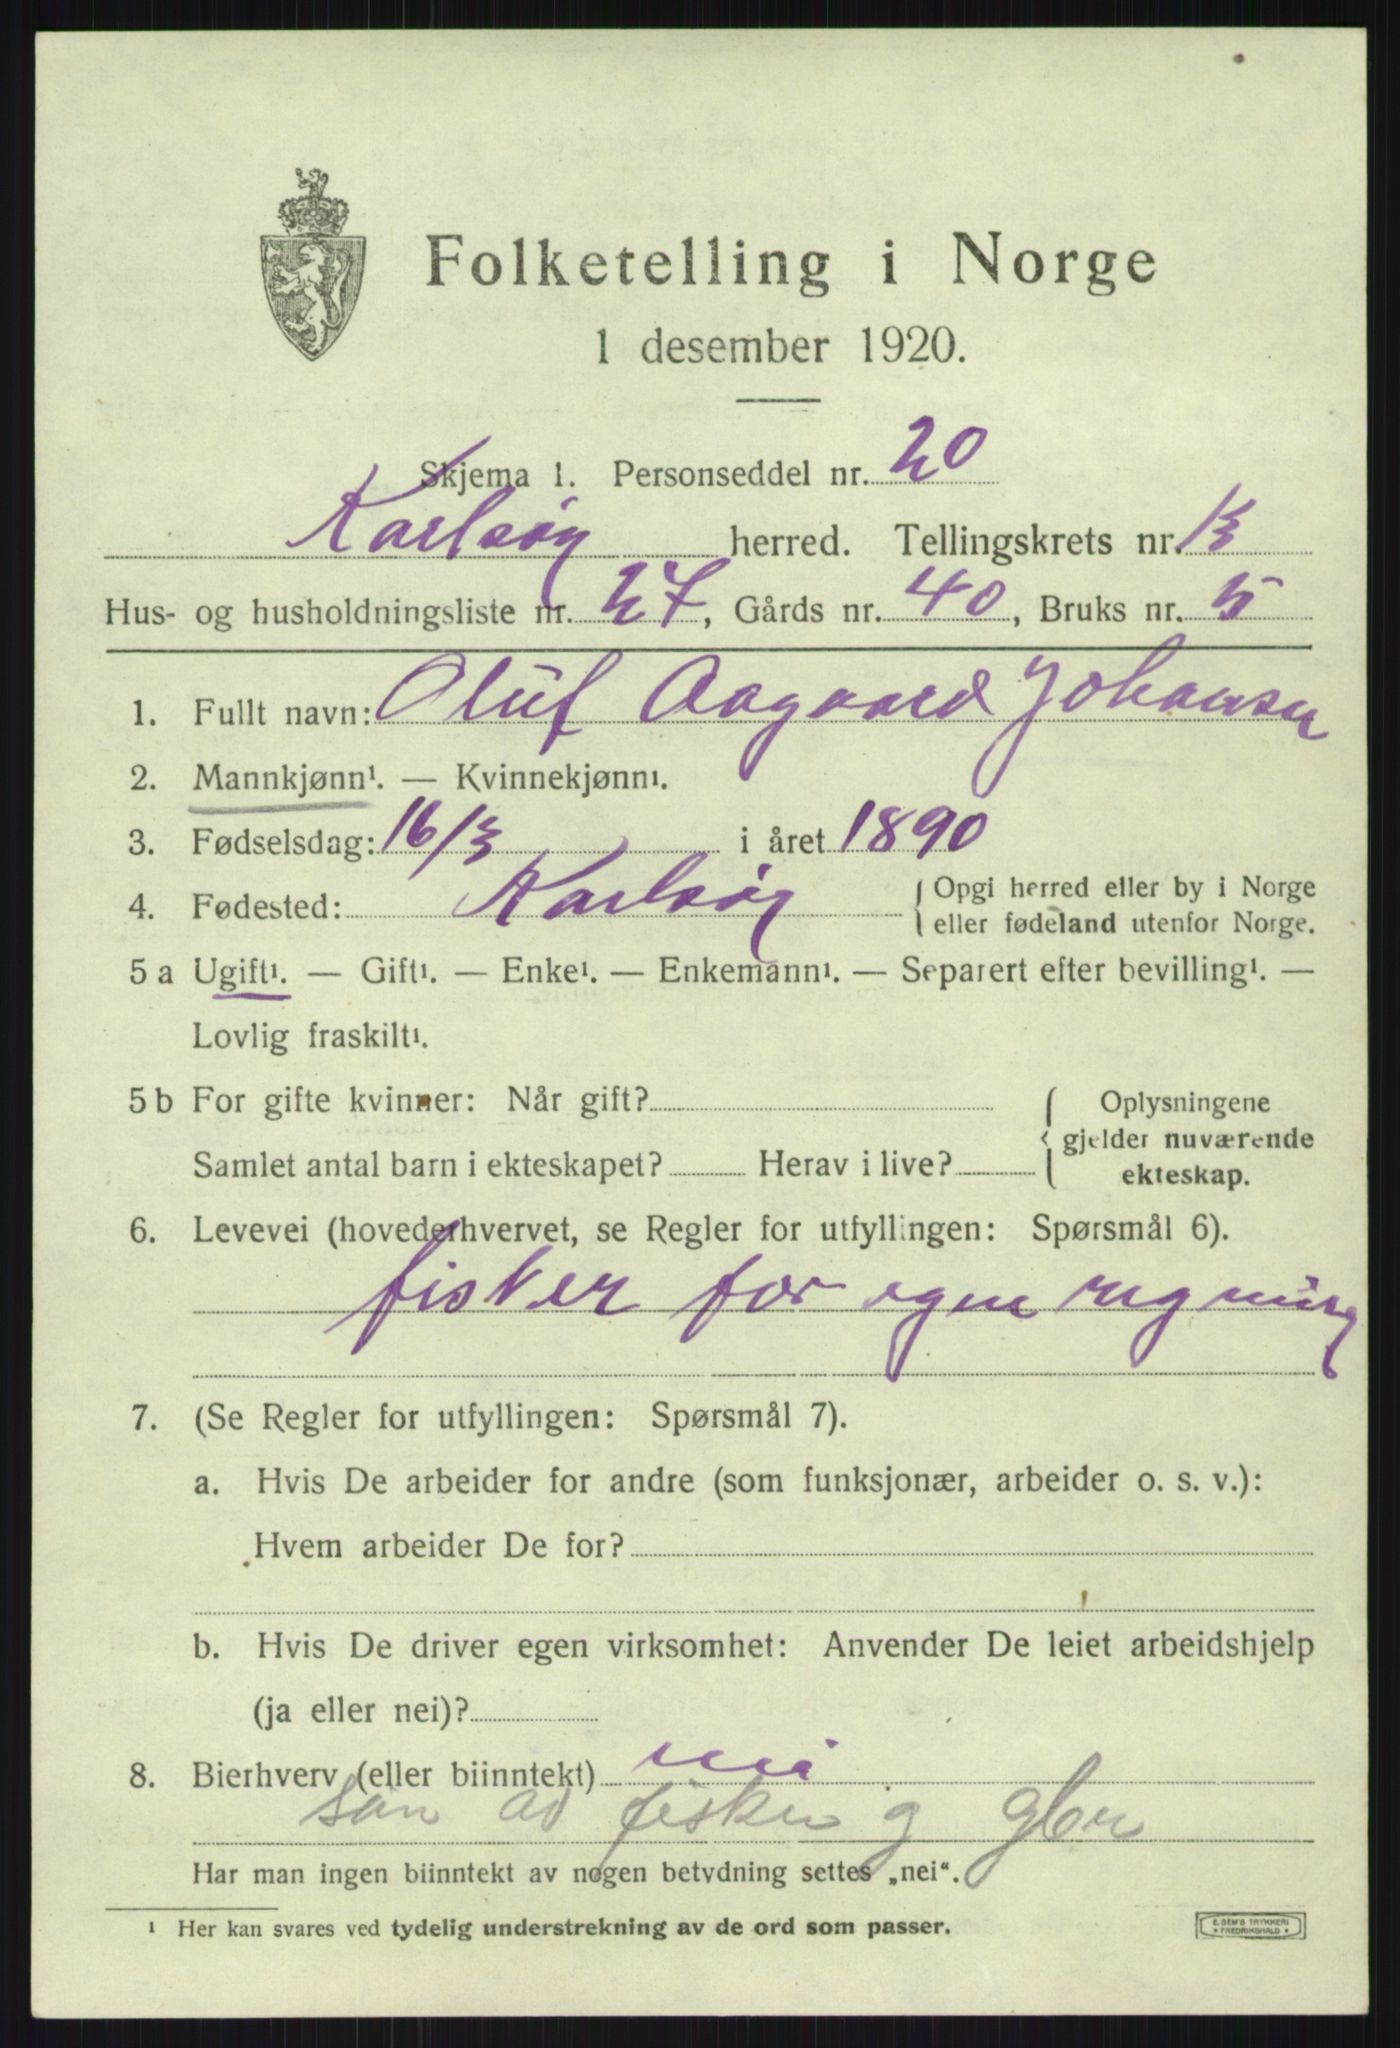 Folketelling i Norge
1 desember 1920.
Skjema 1. Personseddel nr. 20
Karlsøy herred. Tellingskrets nr. 13
Hus- og husholdningsliste nr. 27, Gårds nr. 40, Bruks nr. 5
1. Fullt navn: Oluf Aagaard Johansen
2. Mannkjønn¹. — Kvinnekjønn¹.
3. Fødselsdag: 16/3 i året 1890
4. Fødested: Karlsøy { Opgi herred eller by i Norge
eller fødeland utenfor Norge.
5 a Ugift¹. — Gift¹. — Enke¹. — Enkemann¹. — Separert efter bevilling¹. —
Lovlig fraskilt¹.
5 b For gifte kvinner: Når gift? { Oplysningene
gjelder nuværende
Samlet antal barn i ekteskapet? Herav i live? ekteskap.
6. Levevei (hovederhvervet, se Regler for utfyllingen: Spørsmål 6).
fisker for egne regning
7. (Se Regler for utfyllingen: Spørsmål 7).
a. Hvis De arbeider for andre (som funksjonær, arbeider o. s. v.):
Hvem arbeider De for?
b. Hvis De driver egen virksomhet: Anvender De leiet arbeidshjelp
(ja eller nei)?
8. Bierhverv (eller biinntekt) nei
Søn av fisker g gbr
Har man ingen biinntekt av nogen betydning settes „nei“.
¹ Her kan svares ved tydelig understrekning av de ord som passer.
E. SEM'S TRYKKERI
FREDRIKSHALD